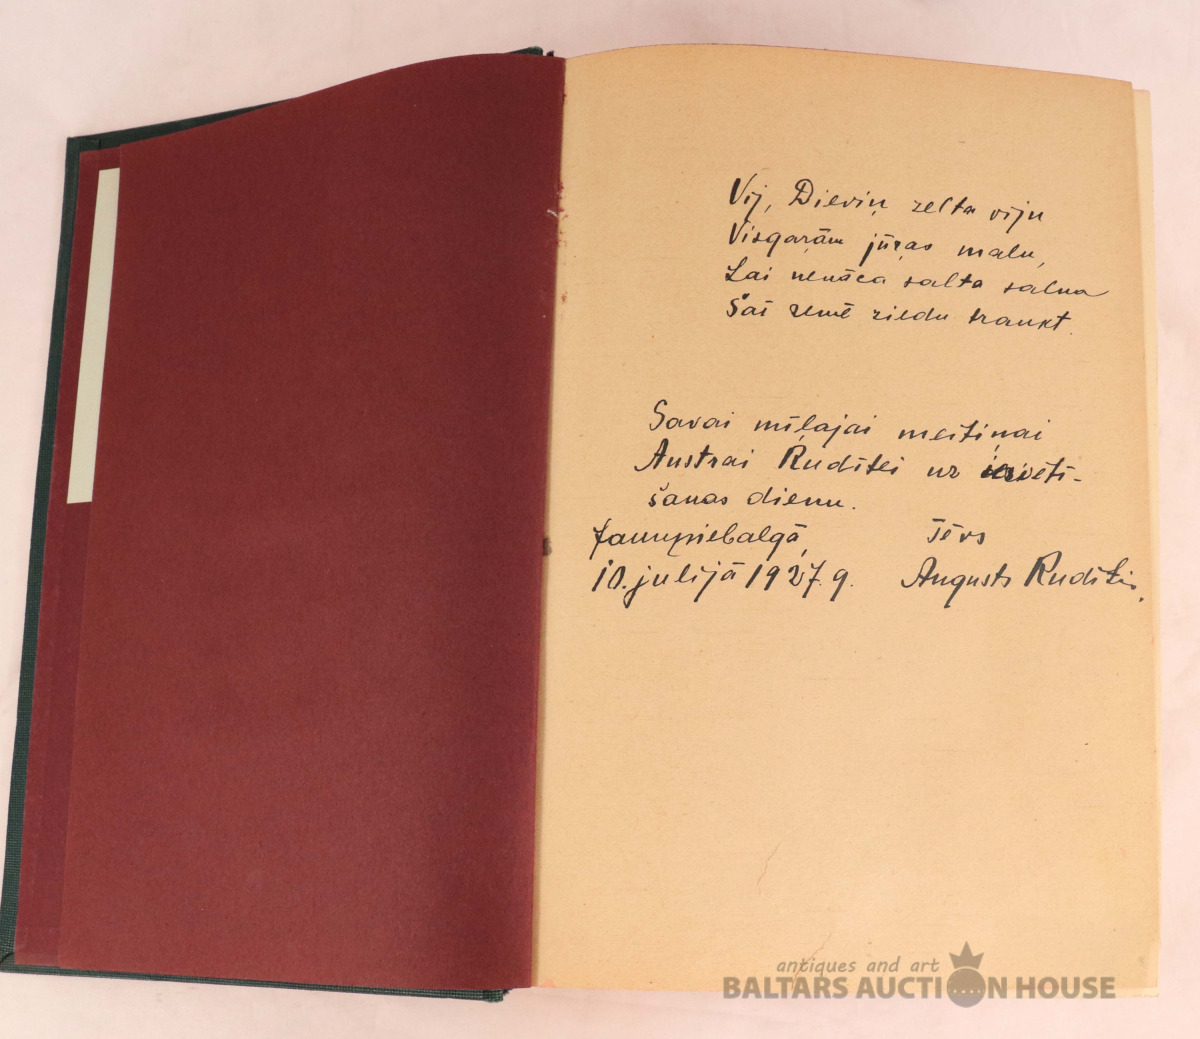 Vij, Dieviņ zelta viju
Visgaŗām jūŗas malu,
Lai nenāca salta salna
Šai zemē ziedu traukt.
Savai mīļajai meitiņai
Austrai Rudītei uz iesvētī-
šanas dienu.
Jaunpiebalgā, Tēvs
10. jūlijā 1927. g. Augusts Rudītis.
antiques and art
BALTARS AUCTION HOUSE